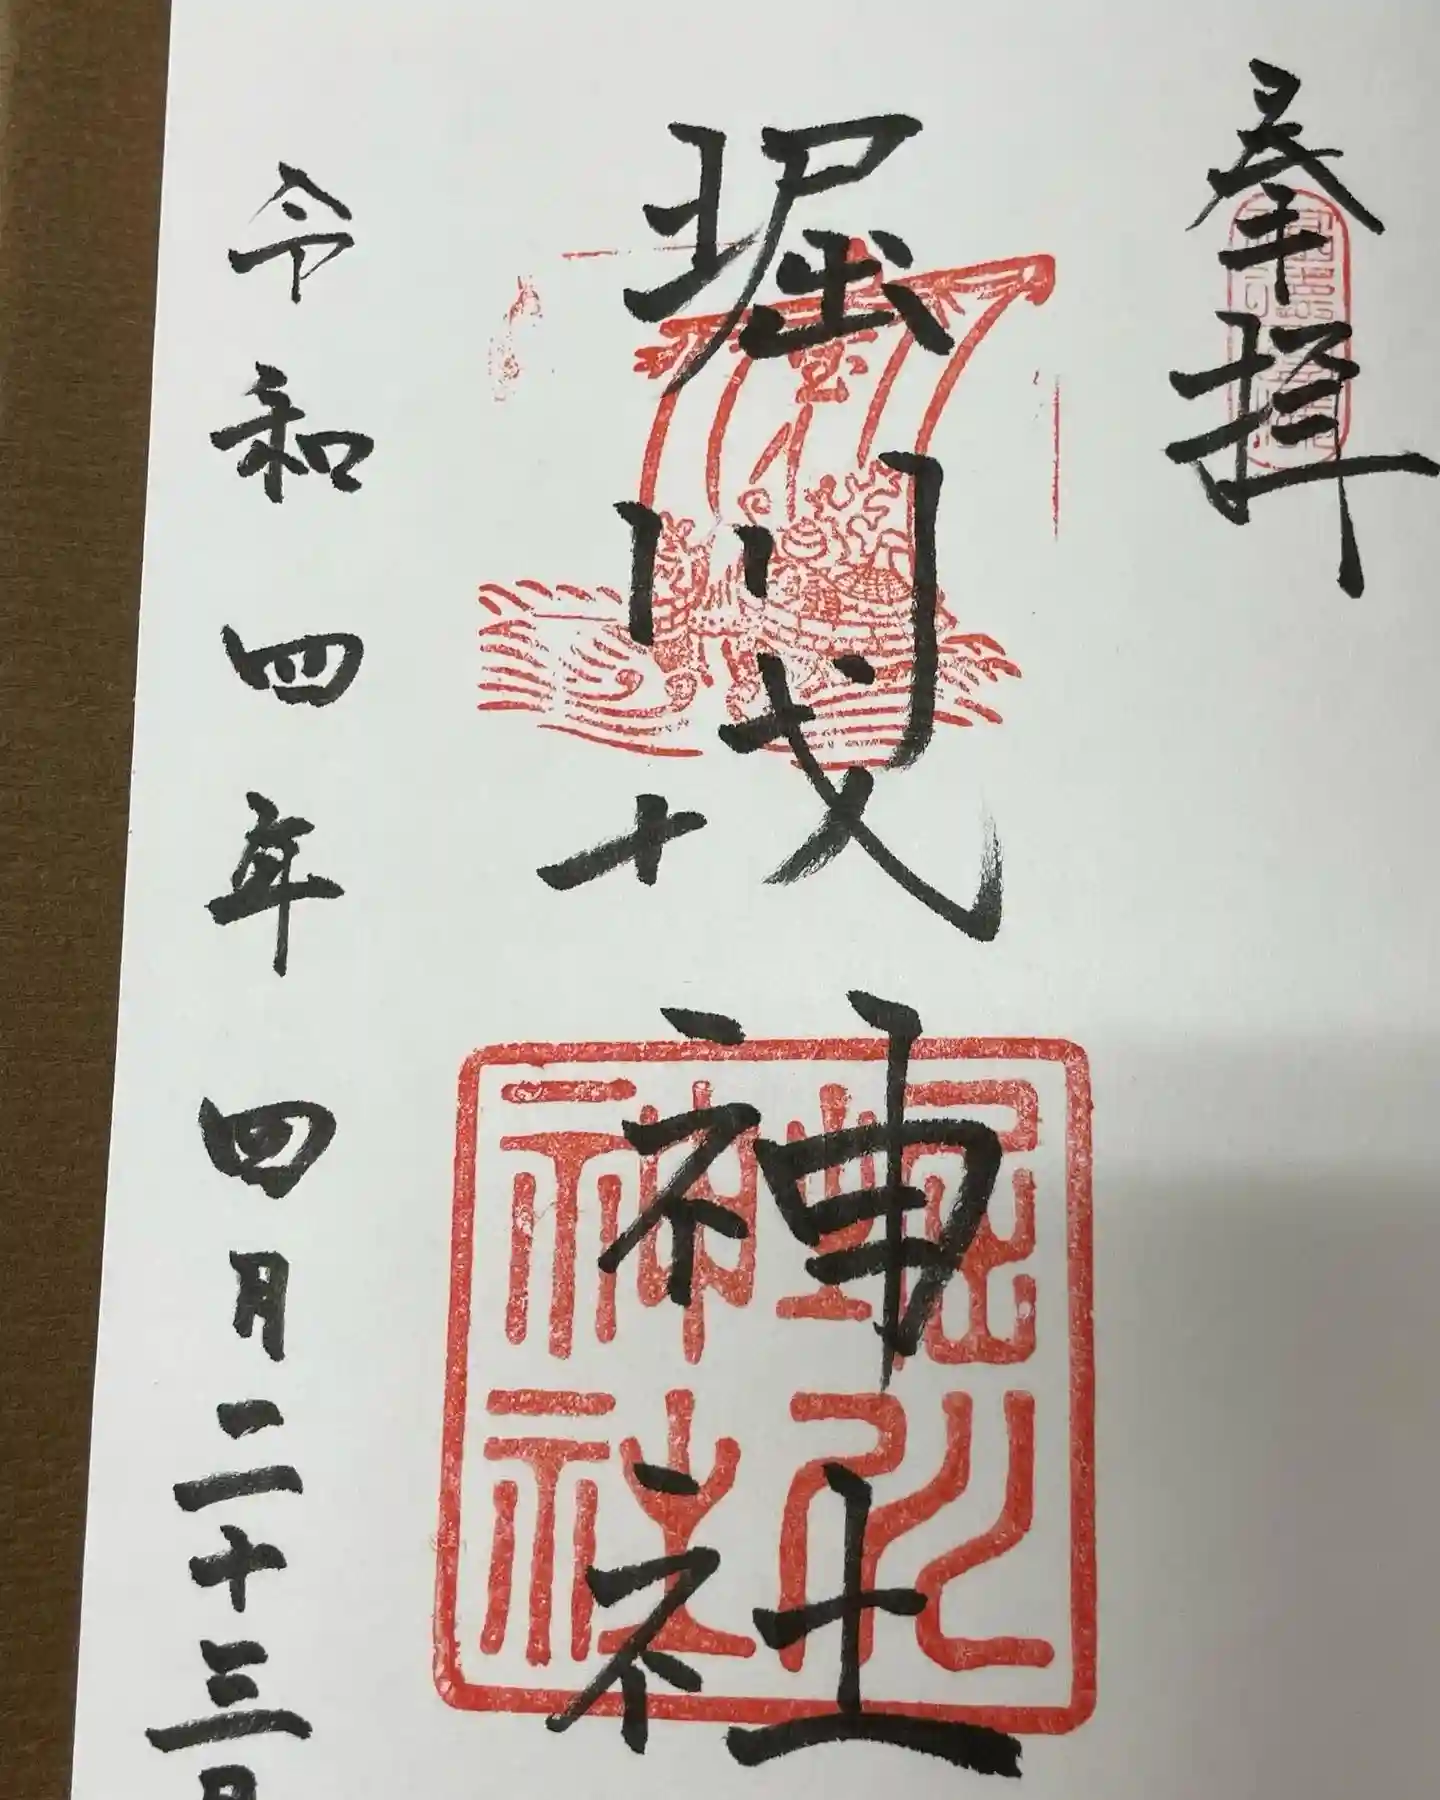 奉拝
堀川戎神社
堀川
神社
令和四年四月二十三日